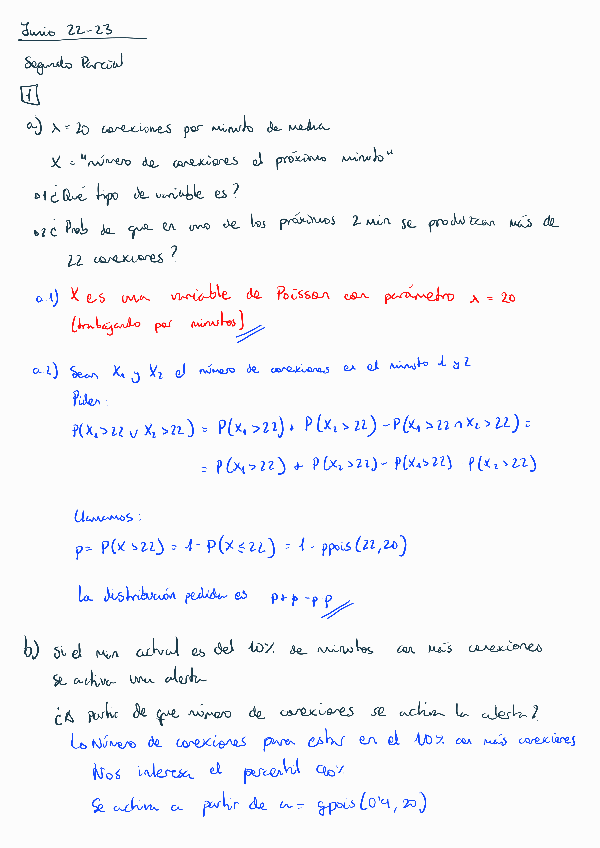 Junio 22-23
Segundo Parcial
1
a) λ = 20 conexiones por minuto de media
X = "número de conexiones el próximo minuto"
a1 ¿Qué tipo de variable es?
a2 ¿Prob de que en uno de los próximos 2 min se produzcan más de
22 conexiones?
a1) X es una variable de Poisson con parámetro λ = 20
(trabajando por minutos)
a2) Sean X₁ y X₂ el número de conexiones en el minuto 1 y 2
Piden:
P(X₁>22 ∪ X₂>22) = P(X₁>22) + P(X₂>22) - P(X₁>22 ∩ X₂>22) =
= P(X₁>22) + P(X₂>22) - P(X₁>22) P(X₂>22)
Llamamos:
p = P(X>22) = 1 - P(X≤22) = 1 - ppois(22,20)
La distribución pedida es p+p-p p
b) Si el min actual es del 10% de minutos con más conexiones
se activa una alerta
¿A partir de que número de conexiones se activa la alerta?
Lo Número de conexiones para estar en el 10% con más conexiones
Nos interesa el percentil
Se activa a partir de a = qpois(0'9, 20)